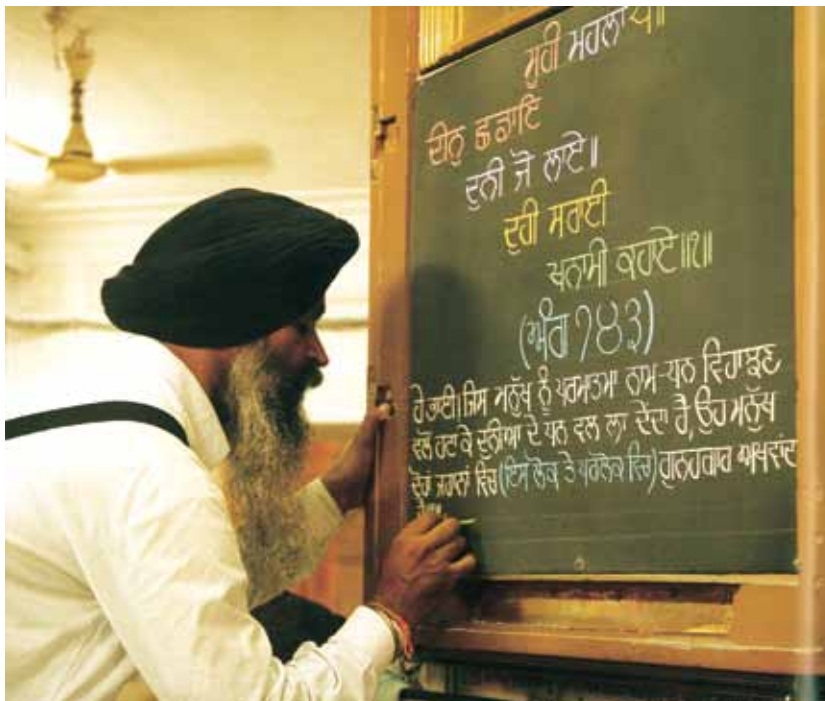 ਸੂਹੀ ਮਹਲਾ ੫॥
ਦੀਨੁ ਛਡਾਇ
ਦੁਨੀ ਜੋ ਲਾਏ॥
ਦੁਹੀ ਸਰਾਈ
ਖੁਨਾਮੀ ਕਹਾਏ॥੧॥
(ਅੰਗ ੭੪੩)
ਹੇ ਭਾਈ! ਜਿਸ ਮਨੁੱਖ ਨੂੰ ਪਰਮਾਤਮਾ ਨਾਮ-ਧਨ ਵਿਹਾਝਣ
ਵਲੋਂ ਹਟਾ ਕੇ ਦੁਨੀਆ ਦੇ ਧਨ ਵਲ ਲਾ ਦੇਂਦਾ ਹੈ, ਉਹ ਮਨੁੱਖ
ਦੋਹਾਂ ਜਹਾਨਾਂ ਵਿਚ (ਇਸ ਲੋਕ ਤੇ ਪਰਲੋਕ ਵਿਚ) ਗੁਨਹਗਾਰ ਅਖਵਾਂਦਾ